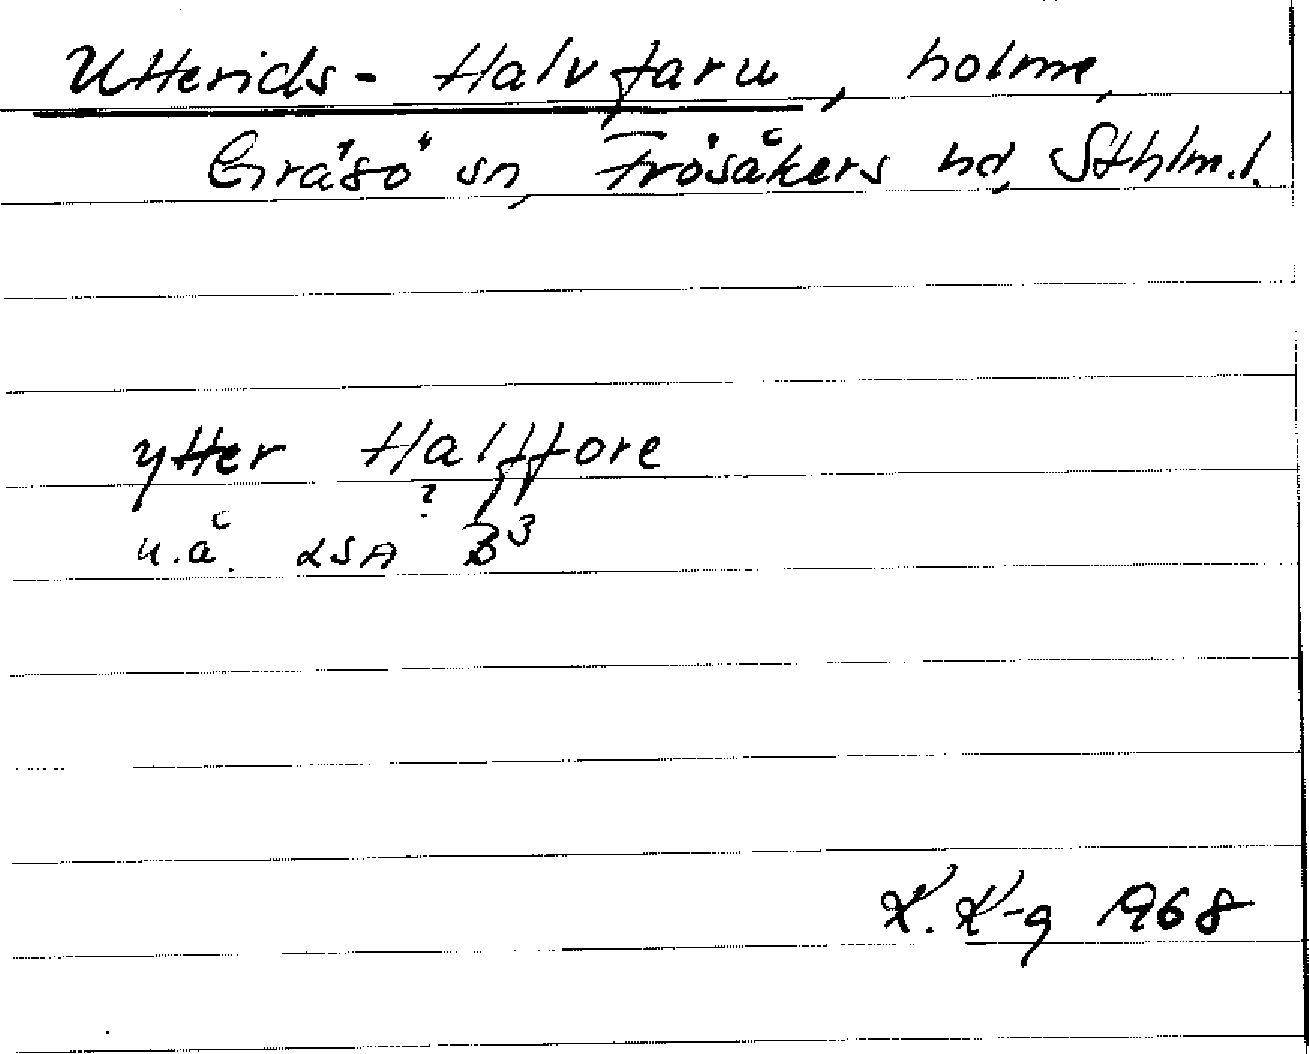 Utterids-Halvfaru, holme,
Gräsö sn, Frösåkers hd, Sthlm.l.
ytter Halffore
?
u.å. LSA B3
K. K-g 1968